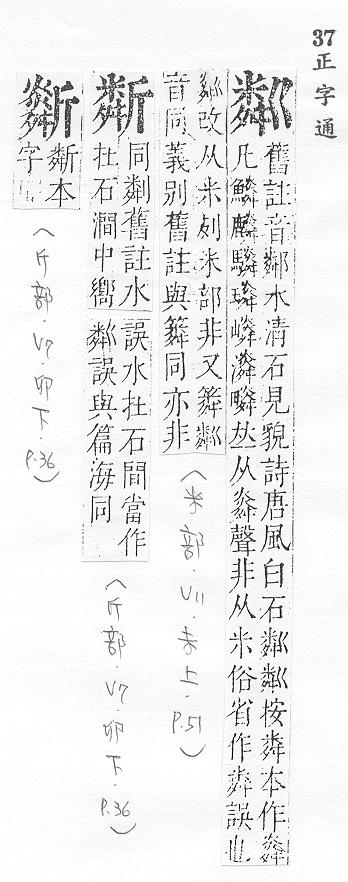 37正字通
粼
舊註音鄰水清石見貌詩唐風白石粼粼按粦本作㷠
凡鱗麟驎璘嶙潾暽𠀤从㷠聲非从米俗省作粦誤也
粼改从米列米部非又粦粼
音同義別舊註與粦同亦非
(米部.V11.未上.P.51)
斴
同㔂舊註水
扗石澗中嚮
誤水扗石間當作
粼誤與篇海同
(斤部.V7.卯下.P.36)
斴本
字
(斤部.V7.卯下.P.36)